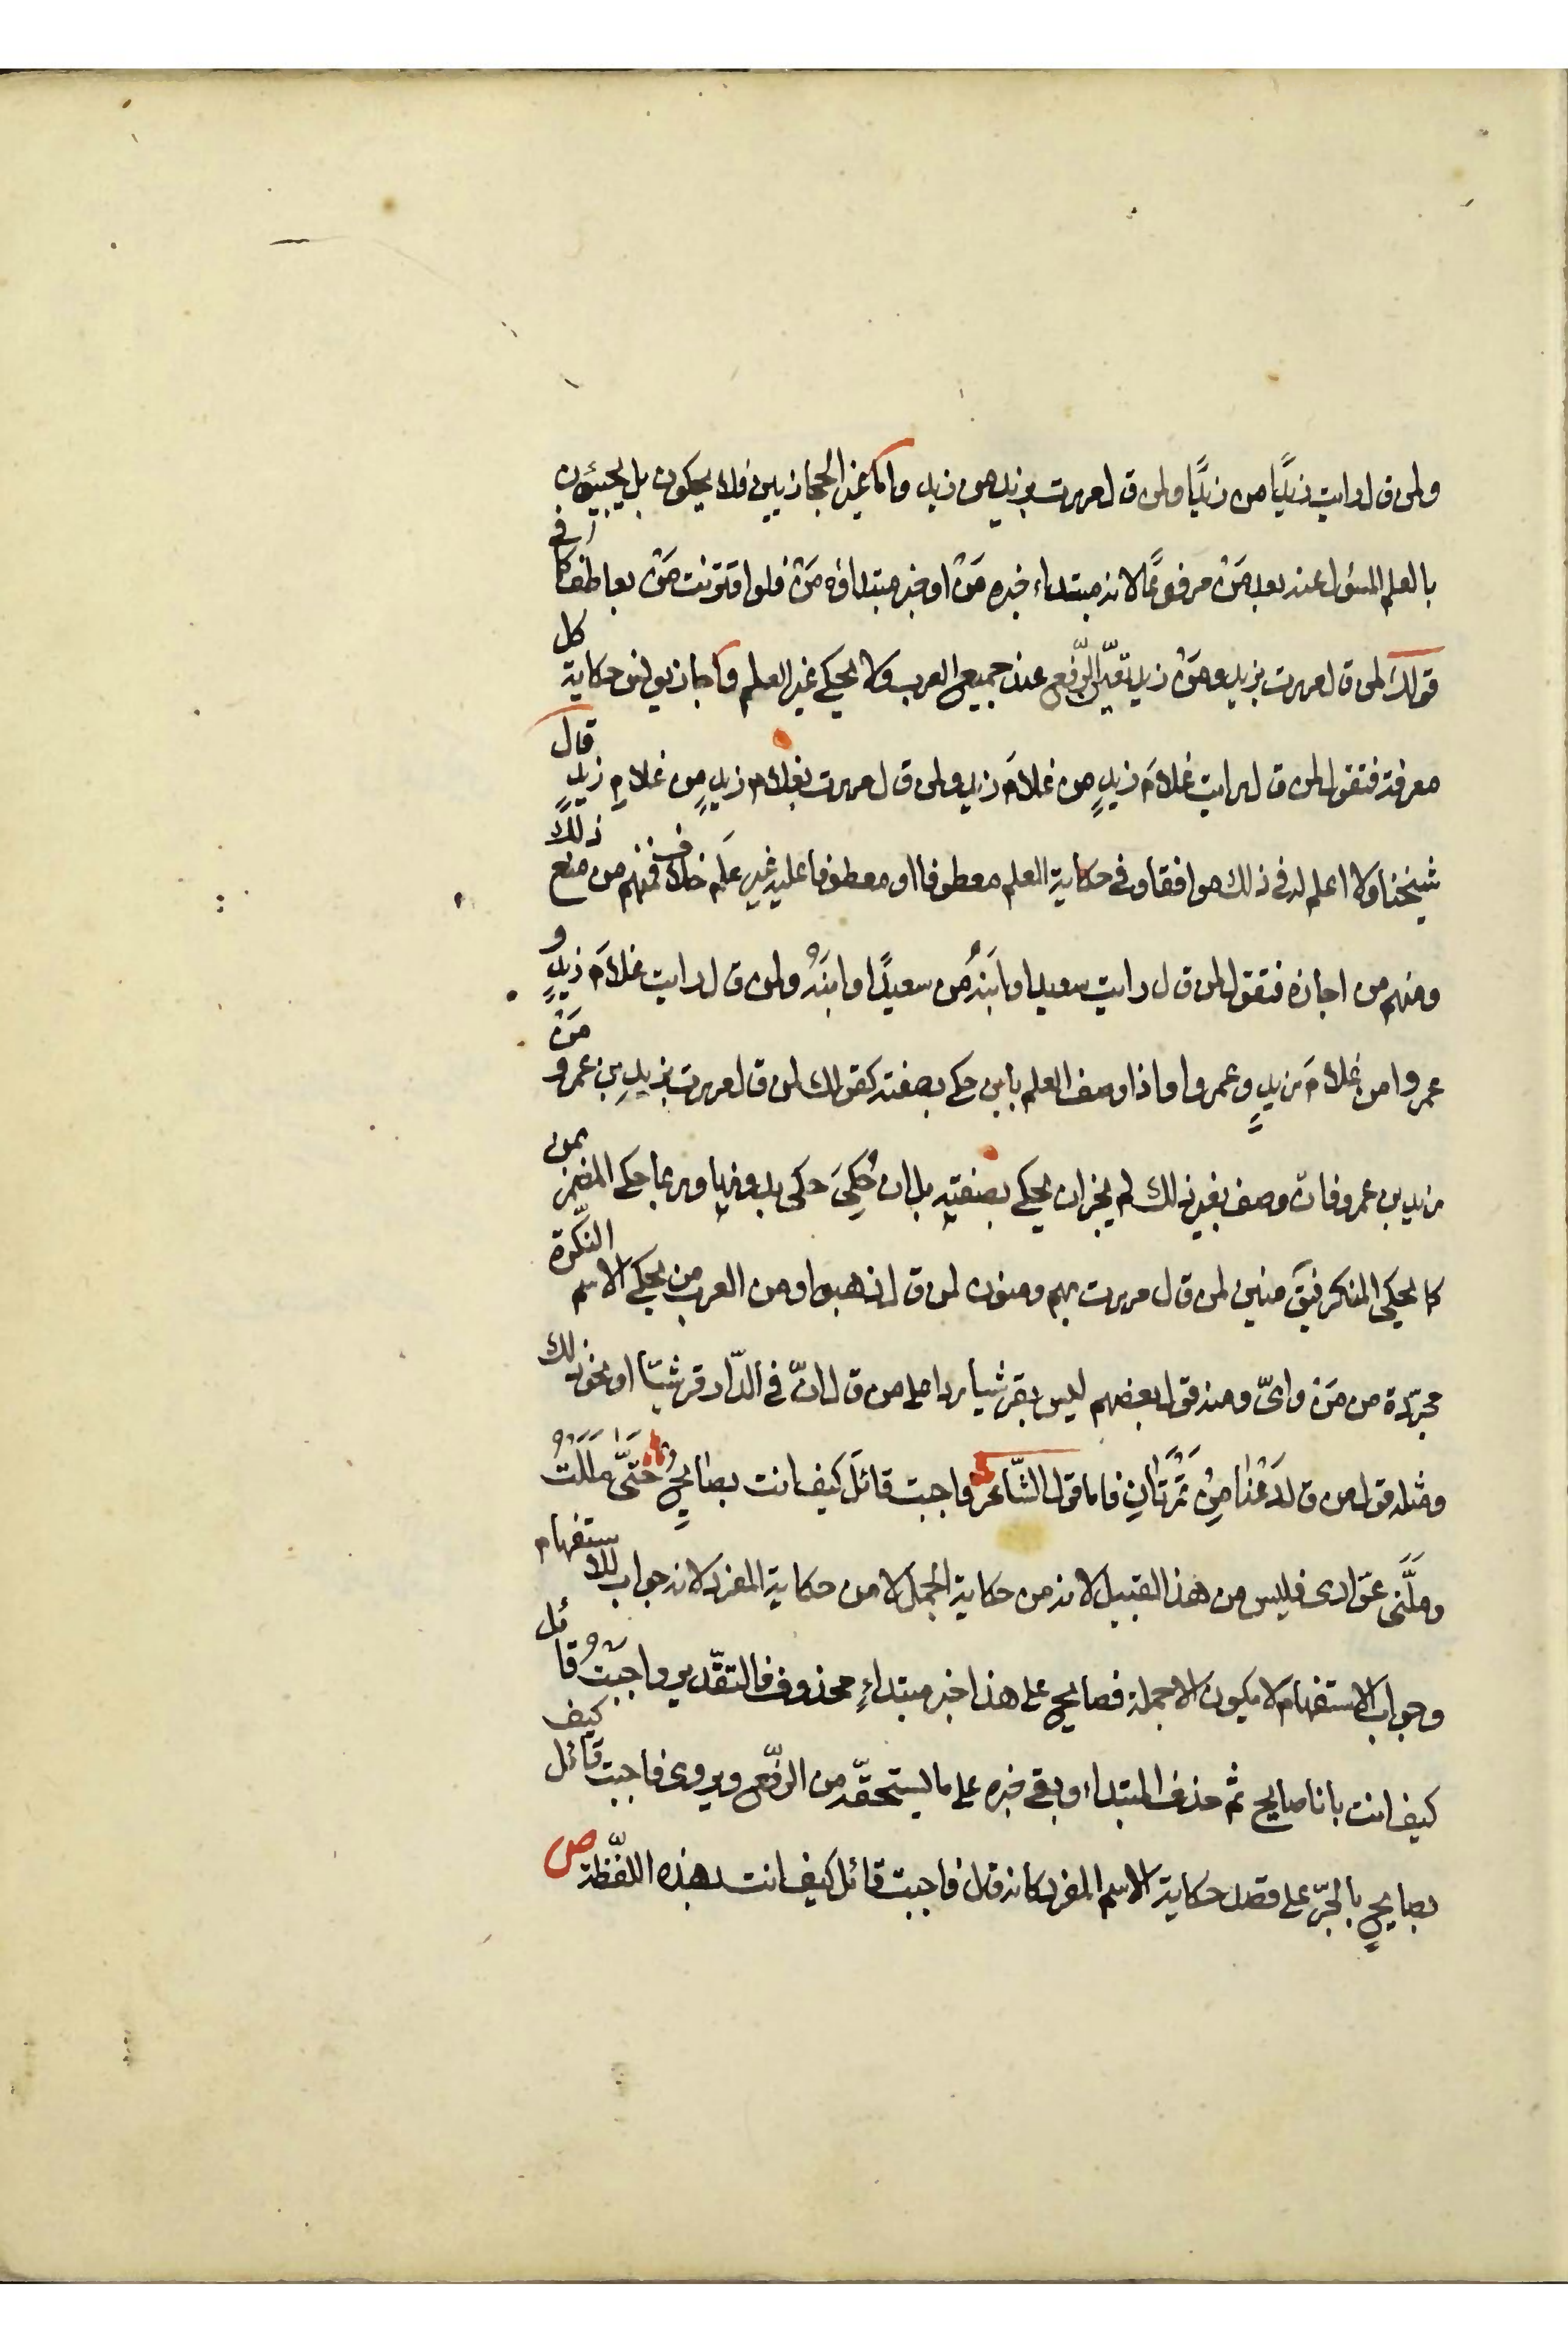 ولمن قال رايت زيدًا من زيدًا ولمن قال مررت بزيد من زيد واما غير الحجازيين فلا يحكون بل يجيئون
بالعلم المسؤل عنه بعد مَنْ مرفوعًا لانه مبتداء خبره مَنْ او خبر مبتداؤه مَنْ فلو اقترنت مَنْ بعاطف كا في
قولك لمن قال مررت بزيد ومَنْ زيد تعيّن الرّفع عند جميع العرب ولا يحكى غير العلم واجاز يونس حكاية كل
معرفة فتقول لمن قال رايت غلامَ زيدٍ من غلامَ زيد ولمن قال مررت بغلام زيدٍ من غلامِ زيدٍ قال
شيخنا ولا اعلم له فى ذلك موافقا وفى حكاية العلم معطوفا او معطوفا عليه غير عَلَم خلاف فمنهم من منع ذلك
ومنهم من اجازه فتقول لمن قال رايت سعيدا وابنَهُ من سعيدًا وابنَهُ ولمن قال رايت غلامَ زيدٍ و
عمروا من غلامَ زيدٍ وعمروا واذا وصف العلم بابن حكى بصفته كقولك لمن قال مررت بزيدِ بن عمرو مَنْ
زيد بن عمرو فان وصف بغير ذلك لم يجز ان يحكى بصفتِه بل ان حُكِىَ حكى بدونها وربما حكى المضمر بمن
كما يحكى المنكر فيق منين لمن قال مررت بهم ومنون لمن قال ذهبوا ومن العرب من يحكى الاسم النّكرة
مجرّدة من مَنْ واىّ ومنه قول بعضهم ليس بقرشيا ردا على من قال انّ فى الدّار قرشيّا او نحو ذلك
ومثله قول من قال دَعْنا مِنْ تَمْرَتَانِ فاما قول الشّاعر واجبت قائلَ كيف انت بصالحٍ حَتَّى مَلَلْتُ
وملَّنى عوّادى فليس من هذا القبيل لانه من حكاية الجمل لا من حكاية المفرد لانه جواب للاستفهام
وجواب الاستفهام لا يكون الا جملة فصالح على هذا خبر مبتداءٍ محذوف فالتقّدير واجبتُ قائل
كيف انت بانا صالح ثم حذف المبتداء وبقى خبره على ما يستحقّه من الرّفع ويروى فاجبت قائل كيف
بصالحٍ بالجرّ على قصد حكاية الاسم المفرد كانه قال فاجبت قائل كيف انت بهذه اللفّظة ص